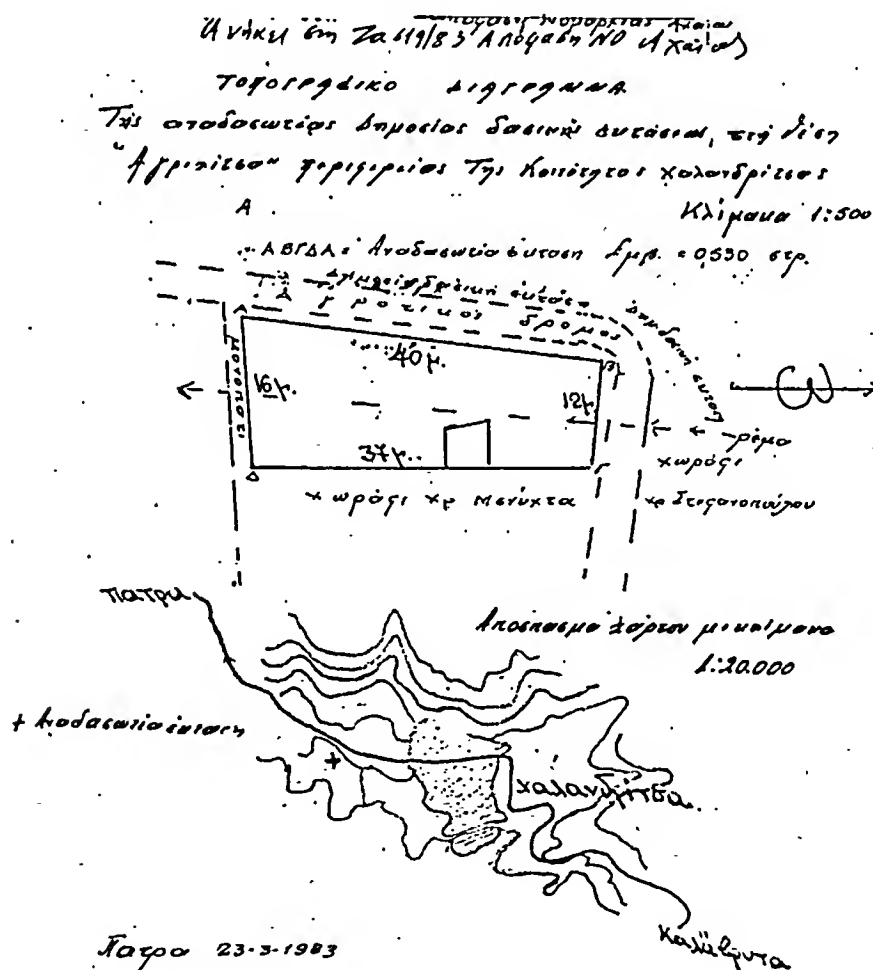 Ανήκει στη 2α 119/83 Απόφαση ΝΟ Αχαΐας
ΤΟΠΟΓΡΑΦΙΚΟ ΔΙΑΓΡΑΜΜΑ
Της αναδασωτέας Δημοσίας δασικής εκτάσεως, στη θέση
"Αγριπίτσα" περιφερείας Της Κοινότητος Χαλανδρίτσας
Κλίμακα 1:500
Α
ΑΒΓΔΑ = Αναδασωτέα έκταση Εμβ. = 0,530 στρ.
δασική έκταση
Αγροτικός δρόμος
Δημ. δασική έκταση
Α
Β
μονοπάτι
16μ.
40μ.
12μ.
37μ.
Δ
ρέμα
χωράφι
χωράφι χρ Μενύχτα
χρ Στεφανοπούλου
Πάτρα
Απόσπασμα χάρτου
1:20.000
+ Αναδασωτέα έκταση
+
Χαλανδρίτσα
Καλάβρυτα
Πάτρα 23-3-1983